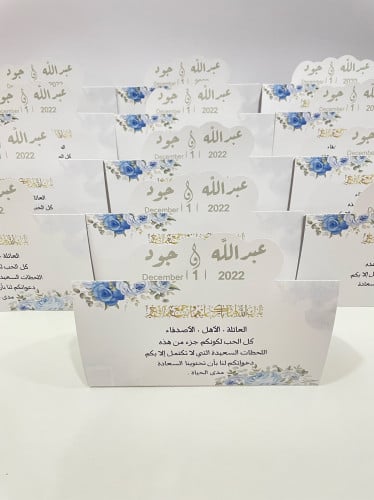 عبدالله و جود
December | 1 | 2022
العائلة ، الأهل ، الأصدقاء
كل الحب لكونكم جزء من هذه
اللحظات السعيدة التي لا تكتمل إلا بكم
دعواتكم لنا بأن تحتوينا السعادة
مدى الحياة .